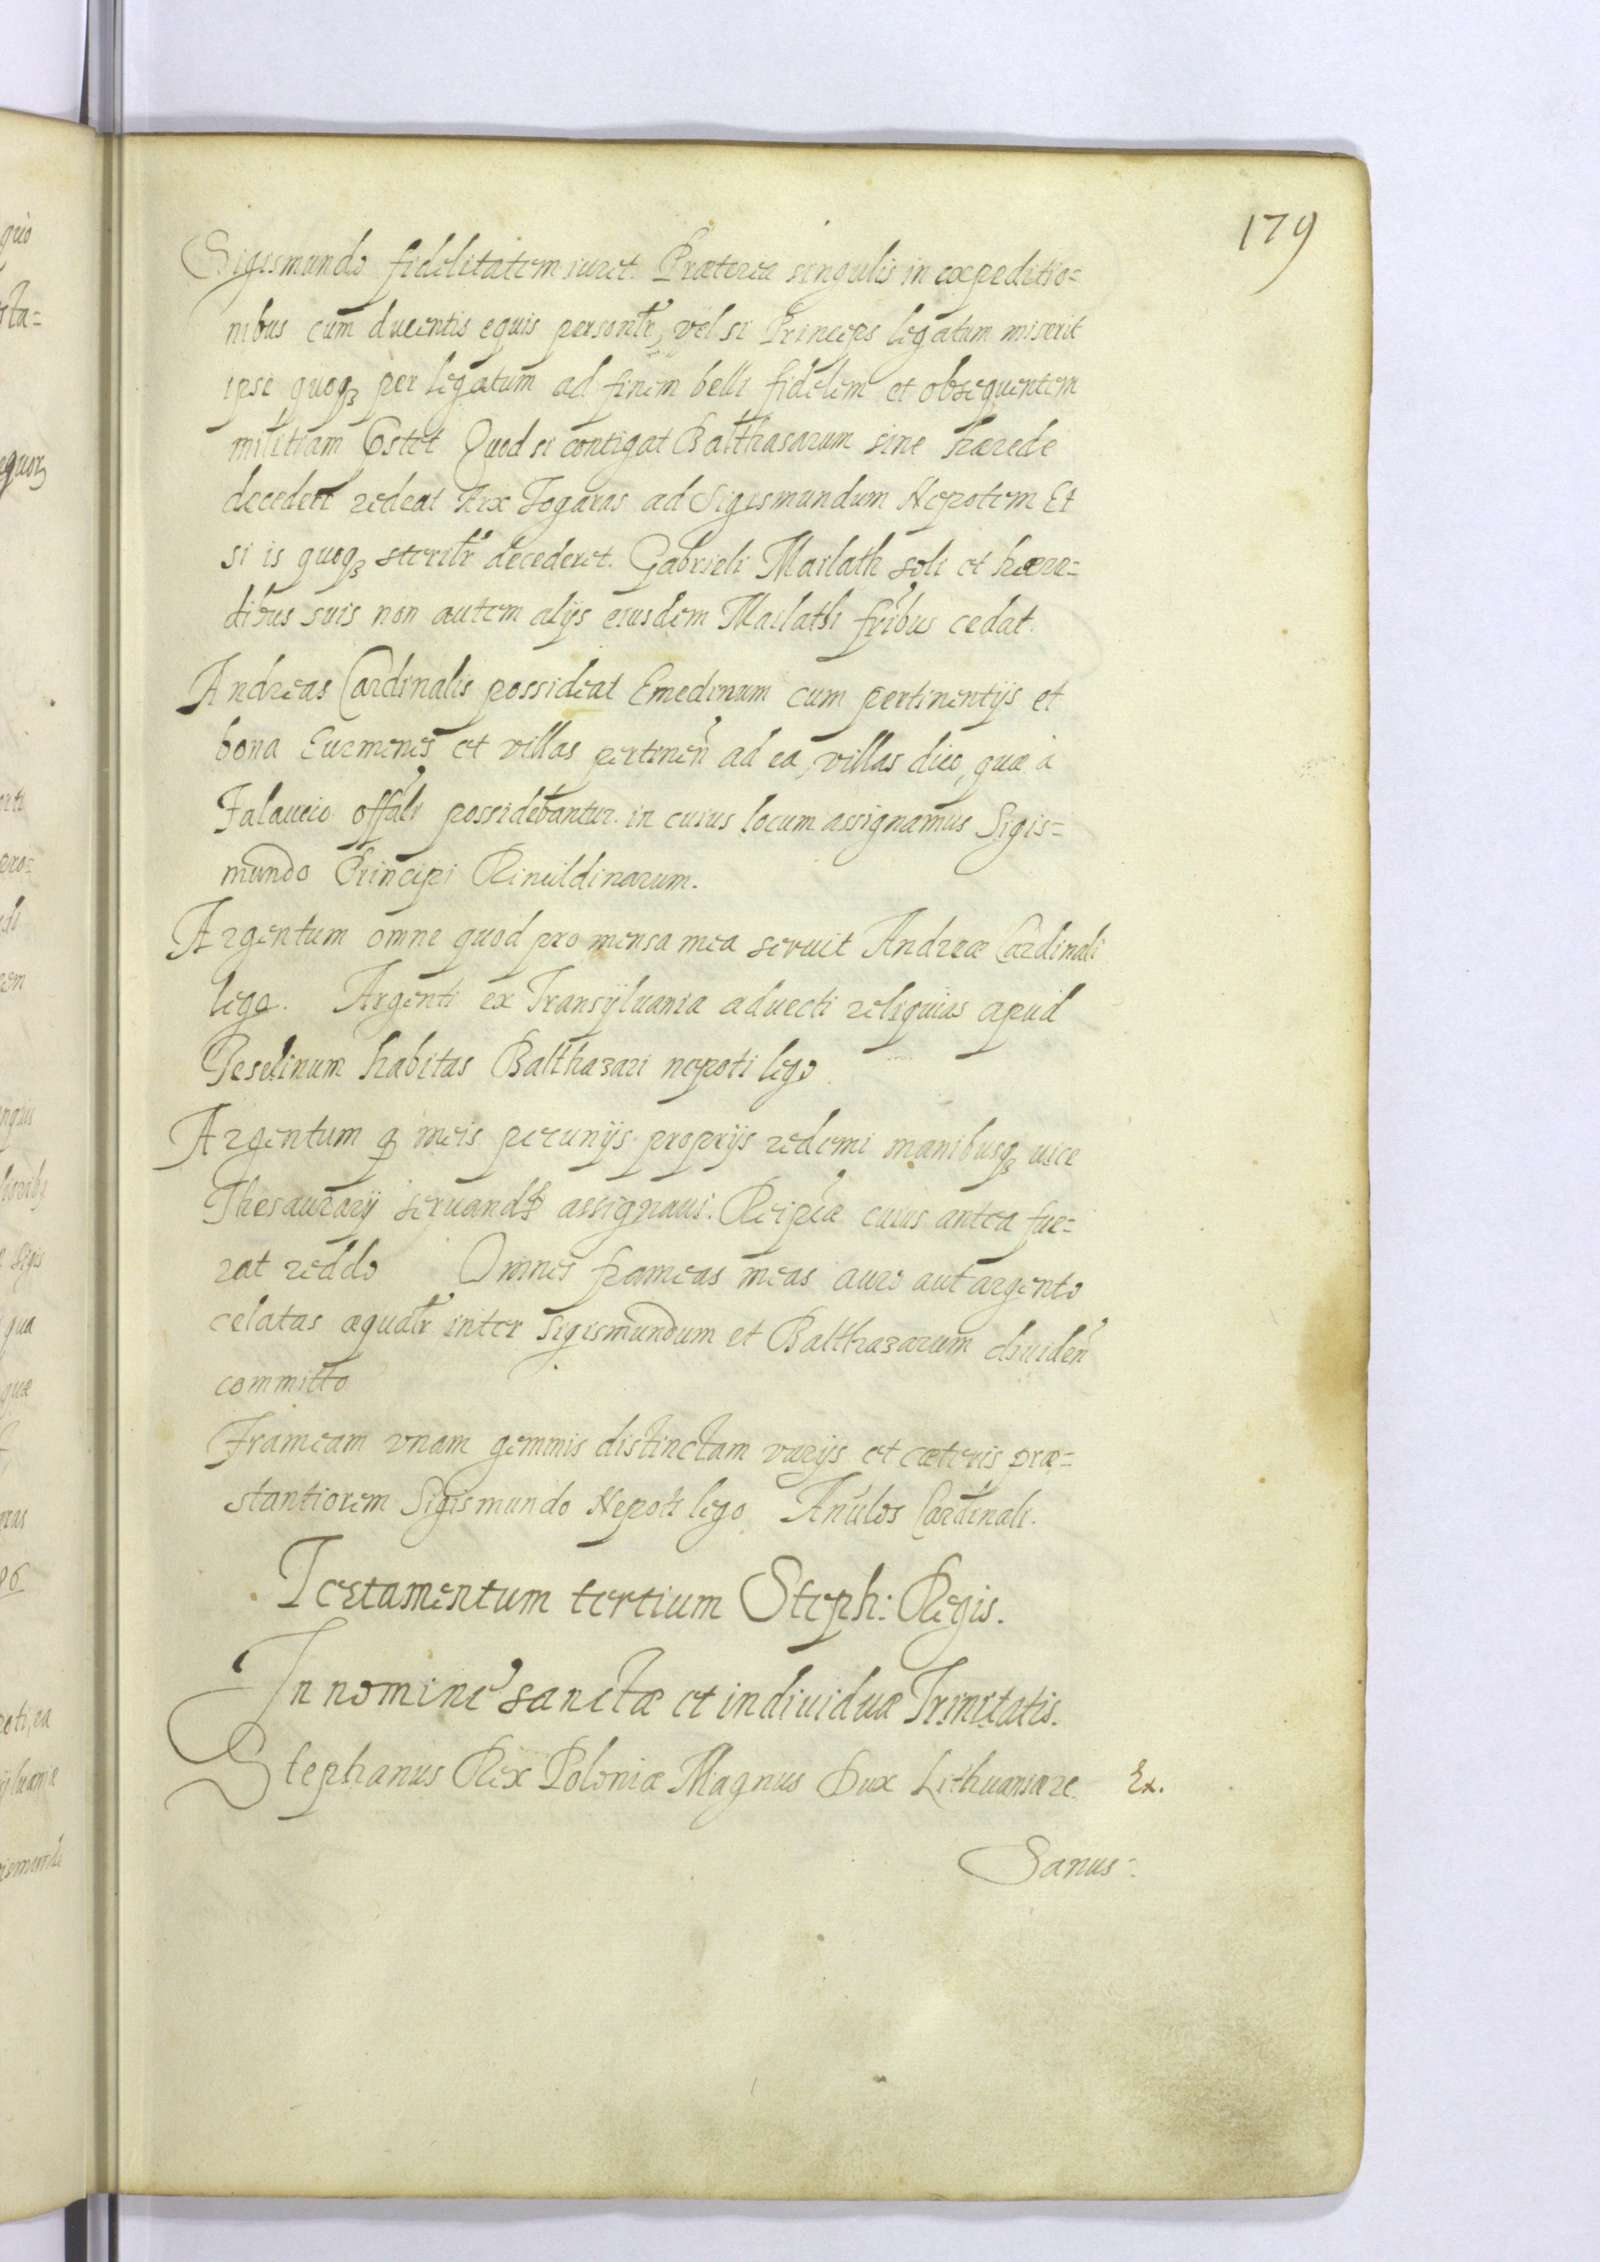 179
Sigismundo fidelitatem iuret. Præterea singulis in expeditio=
nibus cum ducentis equis personlr, vel si Princeps legatum miserit
ipse quoqꝫ per legatum ad finem belli fidelem et obsequentem
militiam Gstet Quod si contigat Balthasarum sine hærede
decedere redeat Arx Fogaras ad Sigismundum Nepotem Et
si is quoqꝫ sterilr decederet. Gabrieli Mailath soli et hære=
dibus suis non autem alijs eiusdem Mailathi fribus cedat.
Andreas Cardinalis possideat Emedinum cum pertinentijs et
bona Euemenes et villas pertinen ad ea, villas dico, quæ à
Falaucio offali possidebantur. in cuius locum assignamus Sigis=
mundo Principi
Argentum omne quod pro mensa mea seruit Andreæ Cardinali
lego. Argenti ex Transyluania aduecti reliquias apud
Geselinum habitas Balthazari nepoti lego
Argentum q meis pecunijs proprijs redemi manibusqꝫ uice
Thesaurarij assignaui. Reipcæ cuius antea fue=
rat reddo Omnes frameas meas auro aut argento
celatas æqualr inter Sigismundum et Balthazarum diuiden
committo
Frameam vnam gemmis distinctam varijs et cæteris præ=
stantiorem Sigismundo Nepoti lego Anulos Cardinali.
Testamentum tertium Steph: Regis.
In nomine sanctæ et indiuiduæ Trinitatis.
Stephanus Rex Poloniæ Magnus Dux Lithuaniæ Ex.
Sanus: